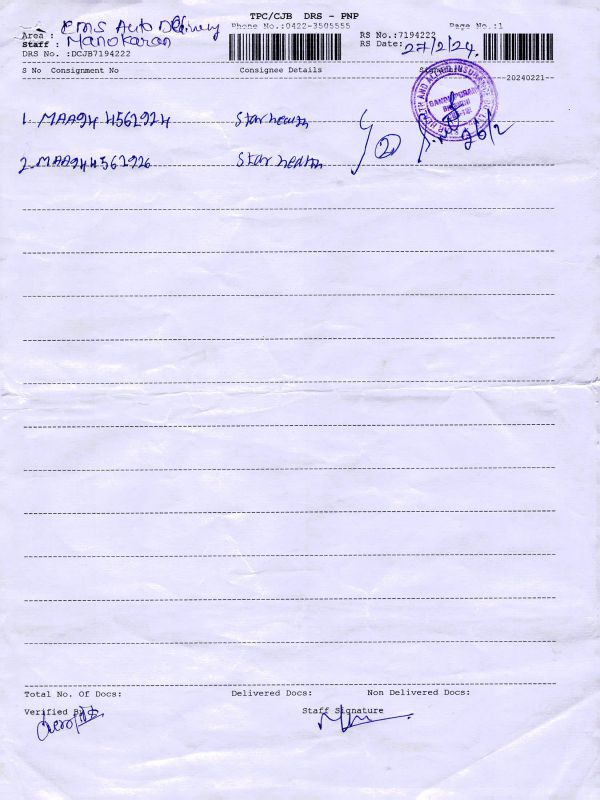 TPC/CJB DRS - PNP
Area : EMS Auto Delivery Phone No.:0422-3505555 RS No.:7194222 Page No.:1
Staff : Manokaran RS Date: 27/2/24.
DRS No. :DCJB7194222
S No Consignment No Consignee Details
20240221
1. MAA944561924 Star health
2. MAA944561926 Star health (2) 26/2
Total No. Of Docs: Delivered Docs: Non Delivered Docs:
Verified By Staff Signature